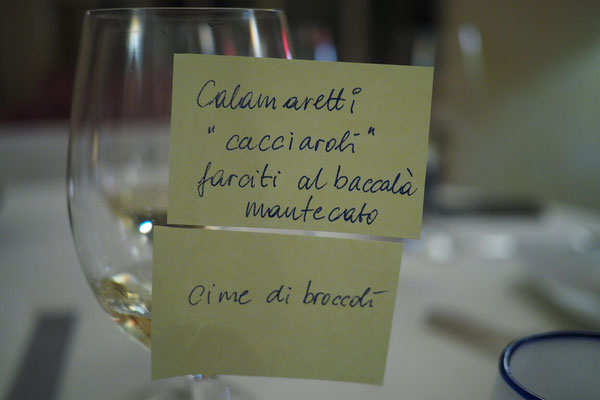 Calamaretti
"cacciaroli"
farciti al baccalà
mantecato
cime di broccoli